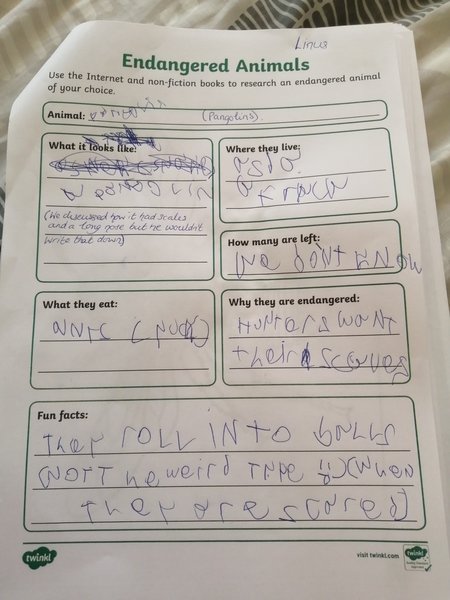 Linus
Endangered Animals
Use the Internet and non-fiction books to research an endangered animal
of your choice.
Animal: (Pangolins).
What it looks like:
a pangolin
(We discussed how it had scales
and a long nose but he wouldn't
write that down)
Where they live:
asia
africa
How many are left:
we dont know
What they eat:
ants (yuck)
Why they are endangered:
Hunters want
their scales
Fun facts:
They ROLL INTO balls
(NOT The weird TYPE (when
they are scared)
twinkl
visit twinkl.com
twinkl